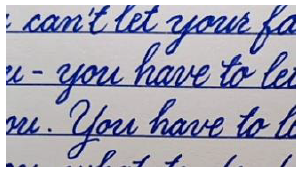 can't let your fa
u - you have to le
ou. You have to l